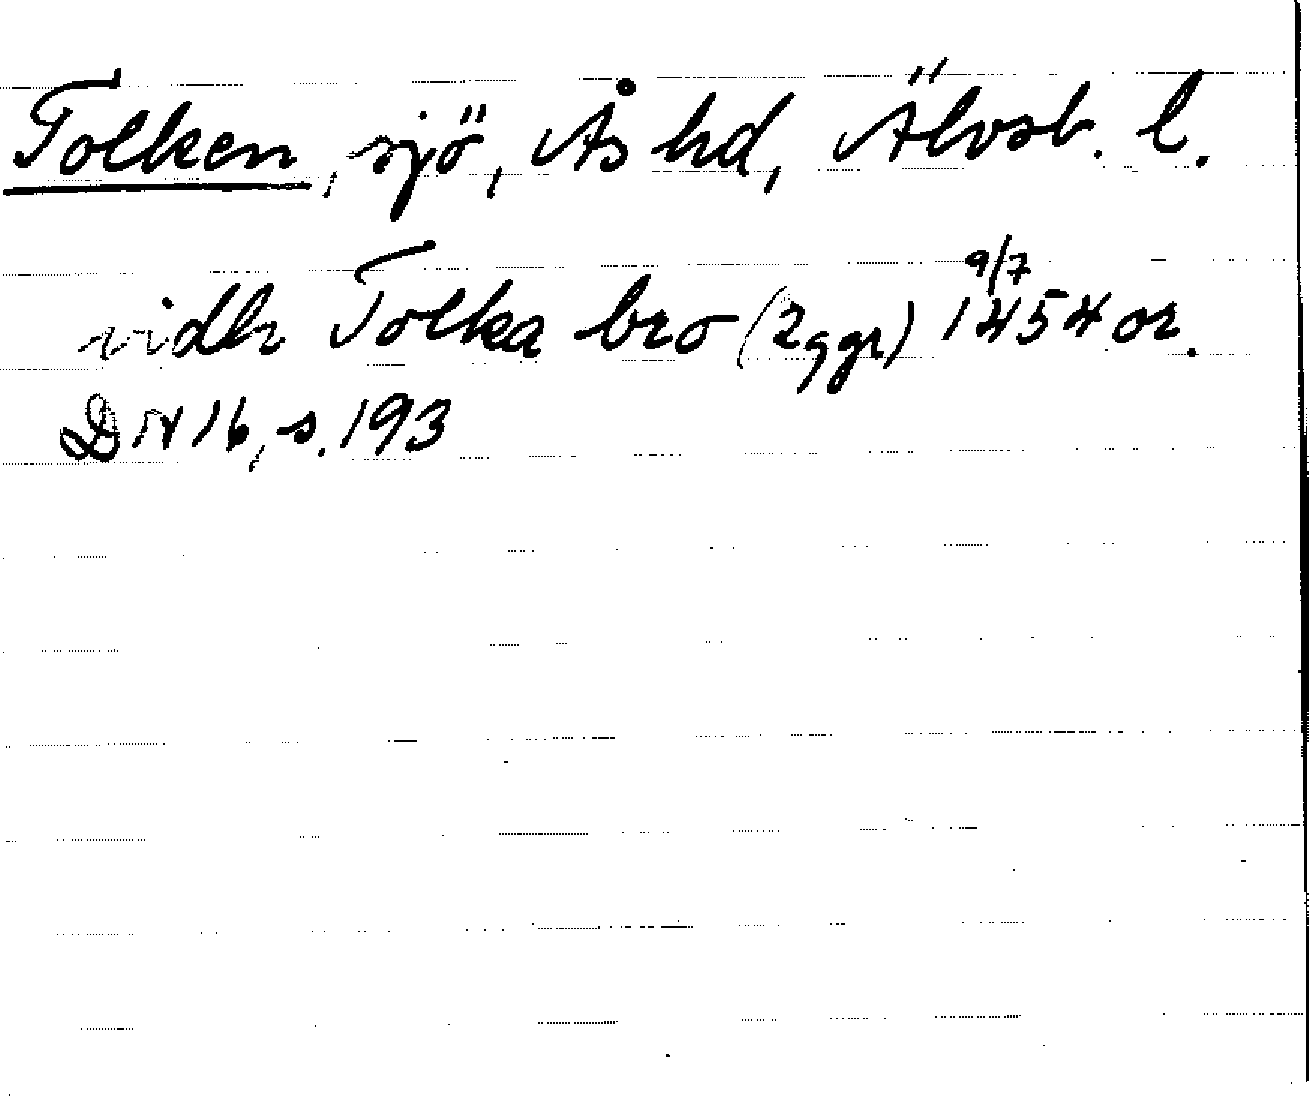 Tolken, sjö, Ås hd, Älvsb. l.
vidh Tolka bro (2 ggr) 9/7 1454 or.
DN 16, s. 193